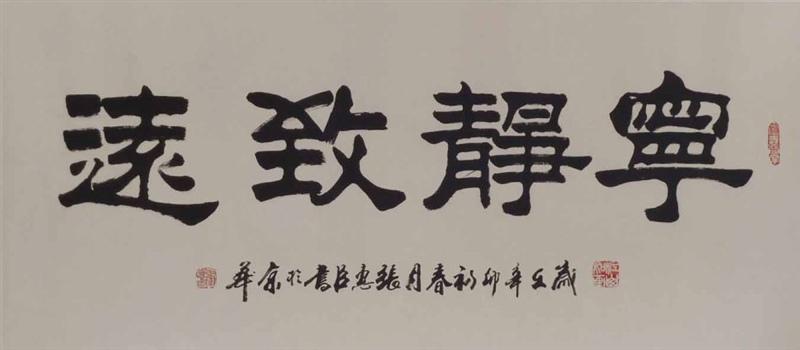 寧靜致遠
歲在辛卯初春月張惠臣書於京華